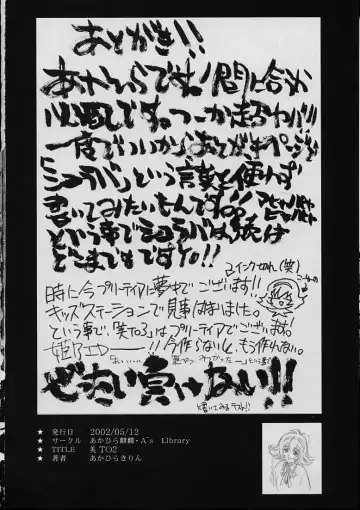 あとがき!!
あかひらです。間に合うか
必死です。つーか走るわ!!
一度でいいからあとがきページを
「シュラバ」という言葉を使わず
書いてみたいもんです。
という事でシュラバな旅は
どこまでもですケド。!!
インク切れ(笑)
時に今プリーティアに夢中でございます!!
キッズステーションで見事はまりました。
という事で、「笑TO3」はプリーティアでございます!
姫乃エロー!!今作らないと、もう作れない。
ぜったい負けない!!
と書いてみるテスト!!
★ 発行日 2002/05/12
★ サークル あかひら麒麟・A's Library
★ TITLE 美TO2
★ 著者 あかひらきりん